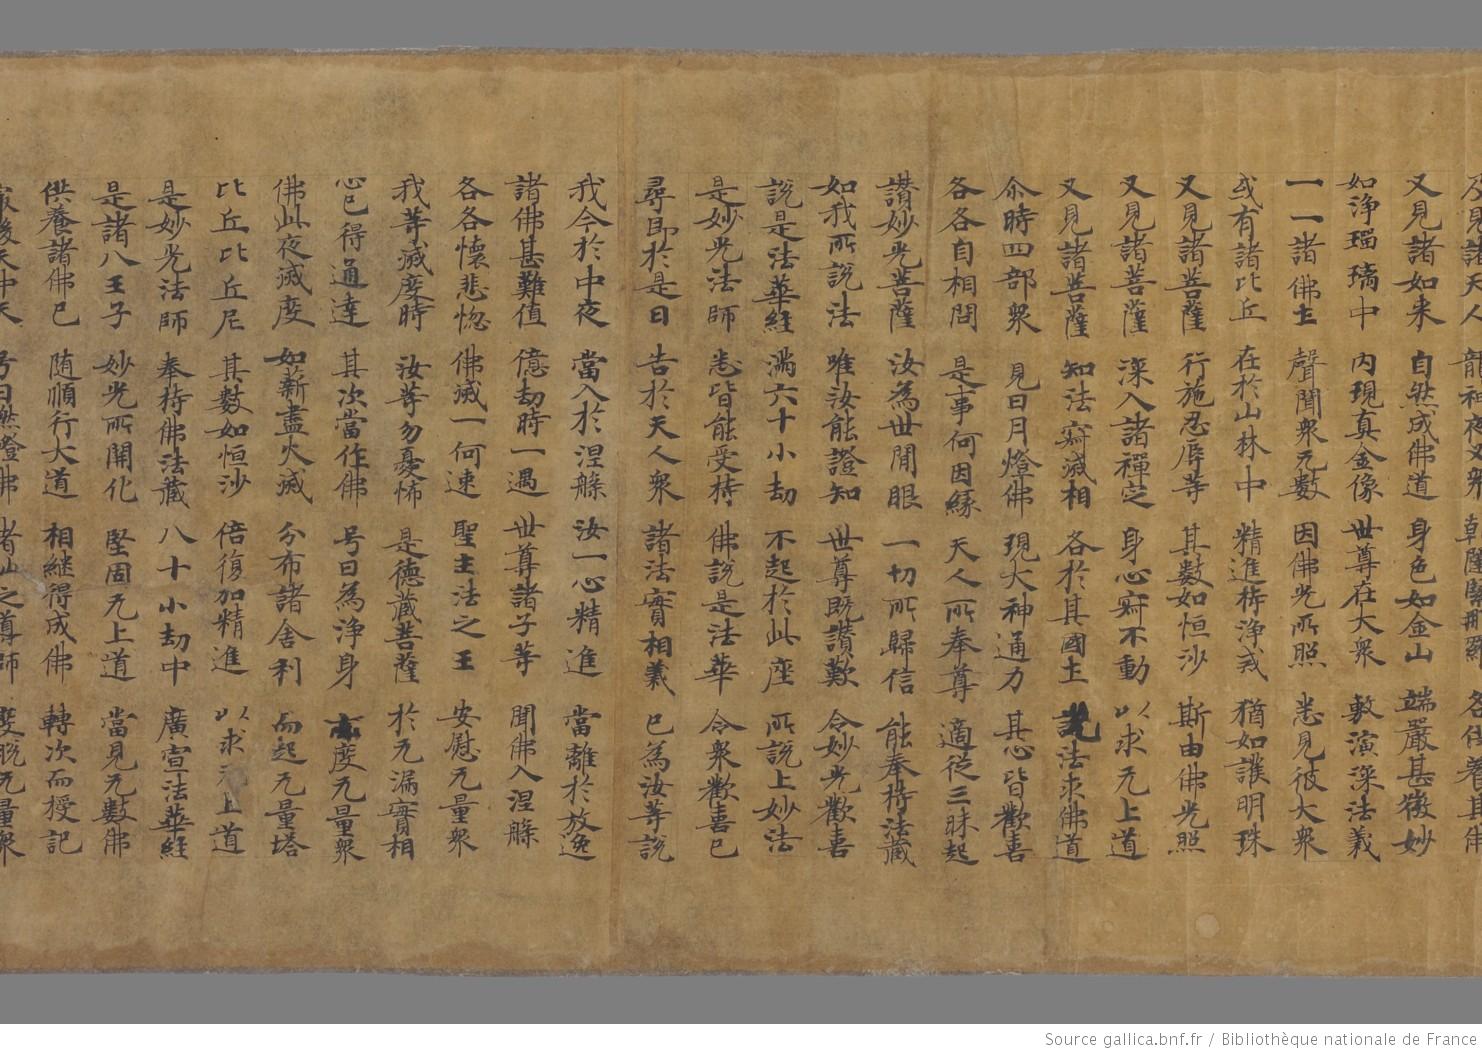 及見諸天人 龍神夜叉衆 乹闥緊那羅 各供養其佛
又見諸如来 自然成佛道 身色如金山 端嚴甚微妙
如浄瑠璃中 内現真金像 世尊在大衆 敷演深法義
一一諸佛土 聲聞衆无數 因佛光所照 悉見彼大衆
或有諸比丘 在於山林中 精進持浄戒 猶如護明珠
又見諸菩薩 行施忍辱等 其數如恒沙 斯由佛光照
又見諸菩薩 深入諸禪定 身心寂不動 以求无上道
又見諸菩薩 知法寂滅相 各於其國土 説法求佛道
尒時四部衆 見日月燈佛 現大神通力 其心皆歡喜
各各自相問 是事何因縁 天人所奉尊 適從三昧起
讃妙光菩薩 汝為世間眼 一切所歸信 能奉持法藏
如我所說法 唯汝能證知 世尊既讃歎 令妙光歡喜
說是法華經 滿六十小劫 不起於此座 所說上妙法
是妙光法師 悉皆能受持 佛說是法華 令衆歡喜已
尋即於是日 告於天人衆 諸法實相義 已為汝等說
我今於中夜 當入於涅槃 汝一心精進 當離於放逸
諸佛甚難值 億劫時一遇 世尊諸子等 聞佛入涅槃
各各懷悲惱 佛滅一何速 聖主法之王 安慰无量衆
我等滅度時 汝等勿憂怖 是德藏菩薩 於无漏實相
心已得通達 其次當作佛 号曰為浄身 亦度无量衆
佛此夜滅度 如薪盡火滅 分布諸舍利 而起无量塔
比丘比丘尼 其數如恒沙 倍復加精進 以求无上道
是妙光法師 奉持佛法藏 八十小劫中 廣宣法華經
是諸八王子 妙光所開化 堅固无上道 當見无數佛
供養諸佛已 随順行大道 相継得成佛 轉次而授記
最後天中天 号曰燃燈佛 諸仙之導師 度脱无量衆
Source gallica.bnf.fr / Bibliothèque nationale de France